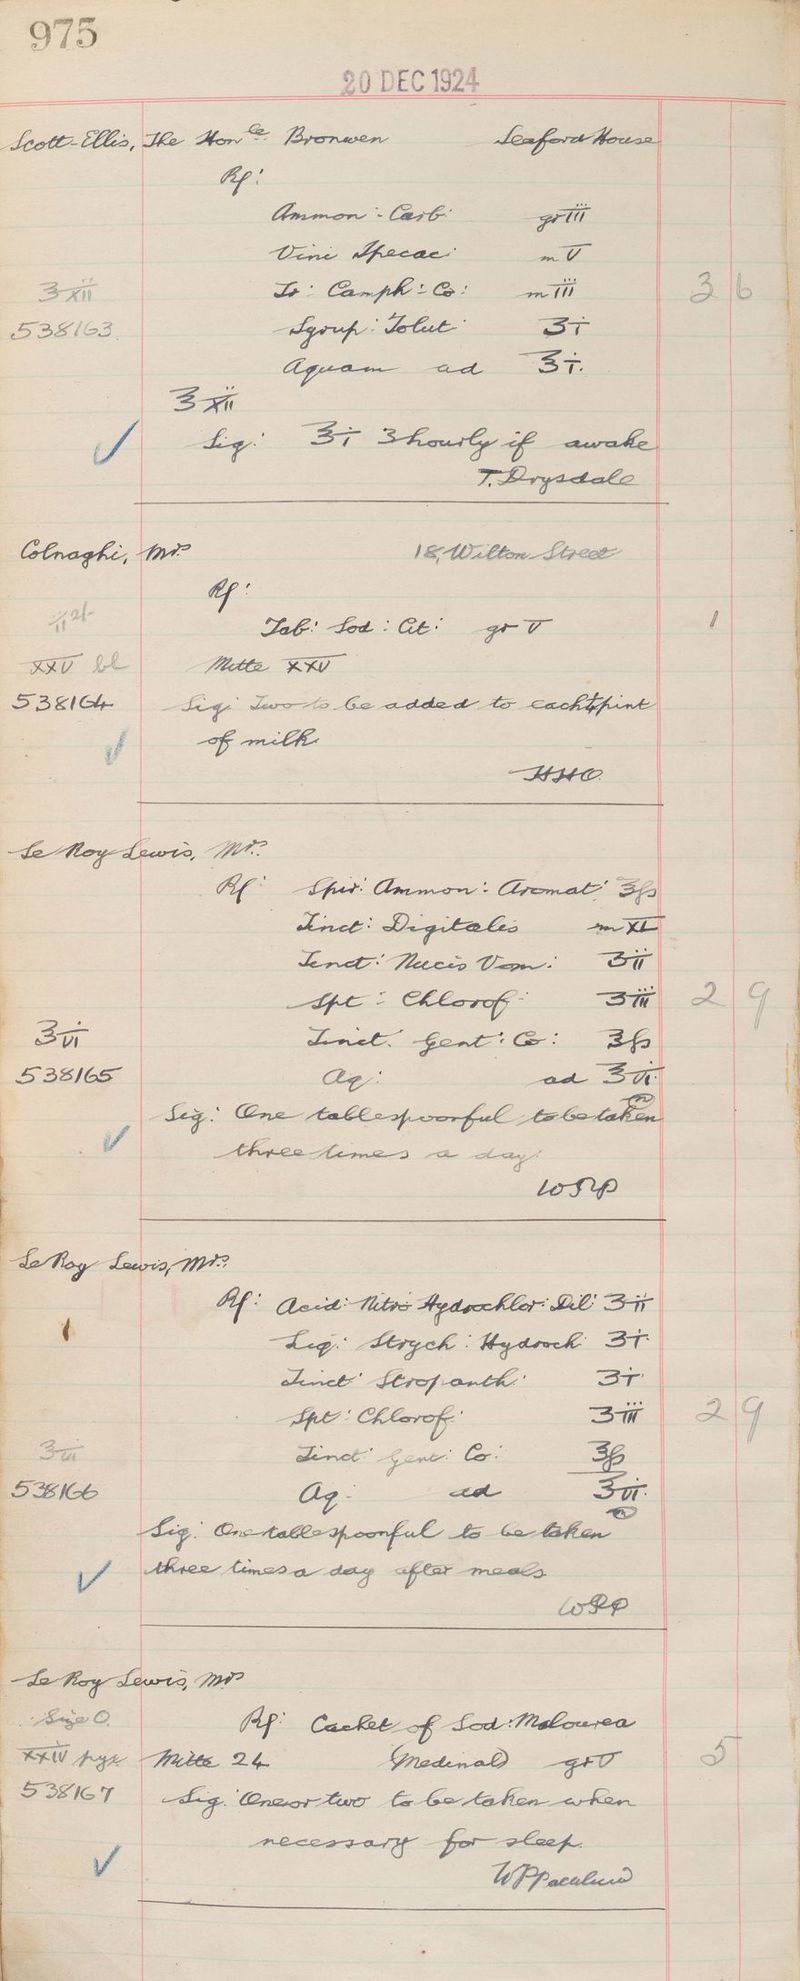 975
20 DEC 1924
Scott-Ellis, The Honble Bronwen Seaford House
Rp:
Ammon: Carb: gr iii
Vini Ipecac: m v
℥ xii Tr: Camph: Co: m iii 3 6
538163 Syrup: Tolut: ʒ i
Aquam ad ℥ i.
℥ xii
Sig: ℥ i 3 hourly if awake
T. Drysdale
Colnaghi, Mrs 18, Wilton Street
Rp:
Tab: Sod: Cit: gr v 1
xxv bl Mitte xxv
538164 Sig: Two to be added to each ¼ pint
of milk.
HHO
Le Roy Lewis, Mrs.
Rp: Spir: Ammon: Aromat: ℥ fs
Tinct: Digitalis m XL
Tinct: Nucis Vom: ʒ ii
Spt: Chlorof: ʒ iii 2 9
℥ vi Tinct: Gent: Co: ℥ fs
538165 Aq: ad ℥ vi.
Sig: One tablespoonful to be taken
three times a day.
WSP
Le Roy Lewis, Mrs.
Rp: Acid: Nitro Hydrochlor: Dil: ʒ ii
Liq: Strych: Hydroch ʒ i
Tinct: Stropanth: ʒ i
Spt: Chlorof: ʒ iii 2 9
℥ vi Tinct: Gent: Co: ℥ fs
538166 Aq: ad ℥ vi.
Sig: One tablespoonful to be taken
three times a day after meals
WSP
Le Roy Lewis, Mrs
Size 0. Rp: Cachet of Sod: Malourea
xxiv Mitte 24 (Medinal) gr v 5
538167 Sig: One or two to be taken when
necessary for sleep.